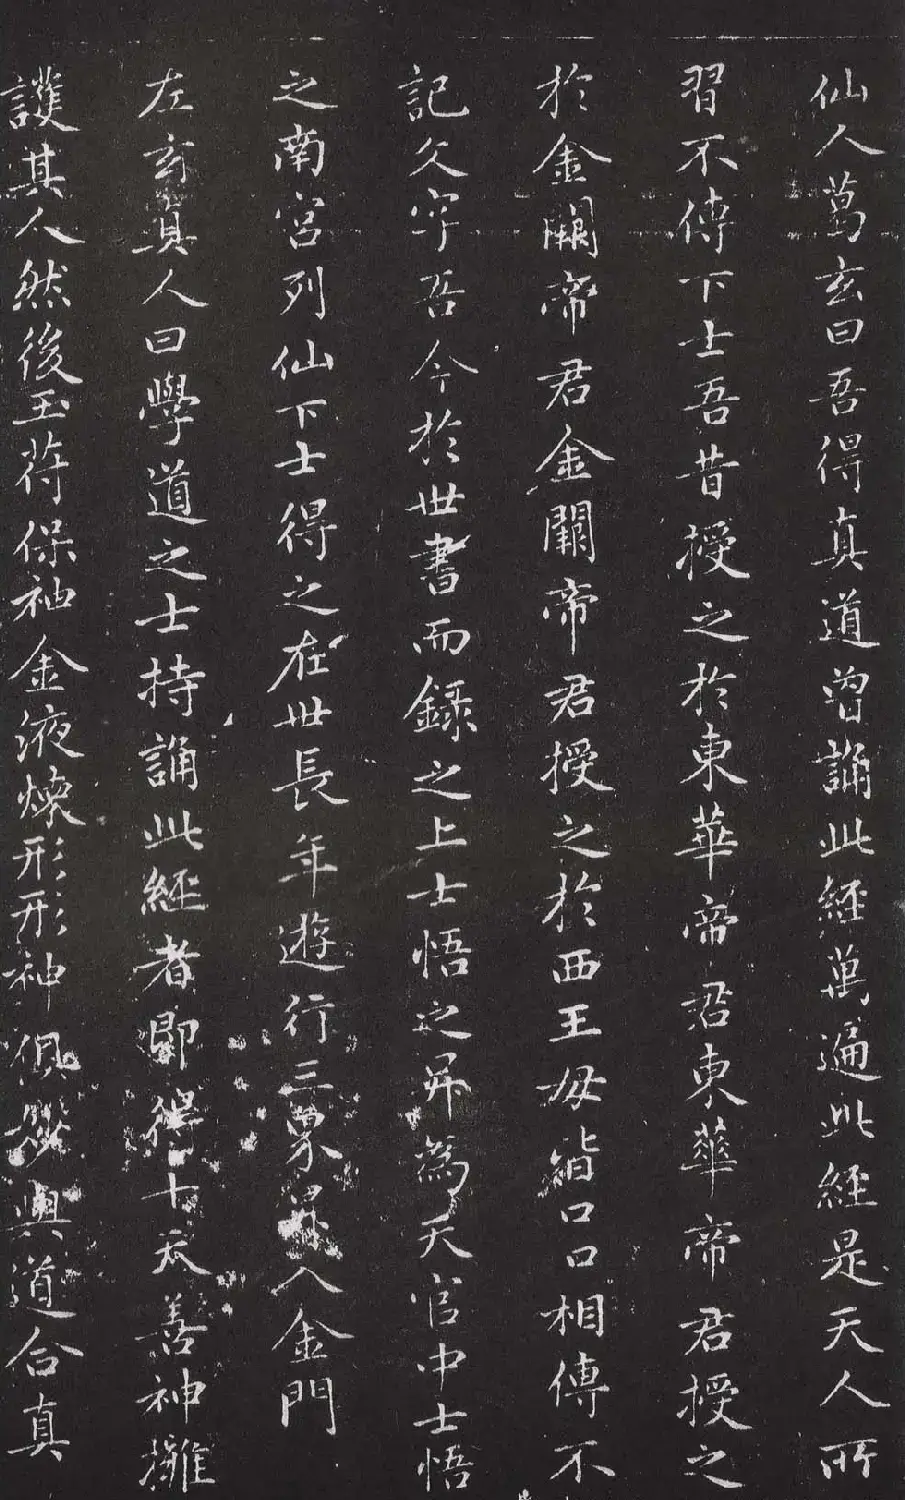 仙人葛玄曰吾得真道曾誦此經萬遍此經是天人所
習不傳下士吾昔授之於東華帝君東華帝君授之
於金闕帝君金闕帝君授之於西王母皆口口相傳不
記文字吾今於世書而録之上士悟之升為天官中士悟
之南宮列仙下士得之在世長年遊行三界升入金門
左玄真人曰學道之士持誦此經者即得十天善神擁
護其人然後玉符保神金液煉形形神俱妙與道合真